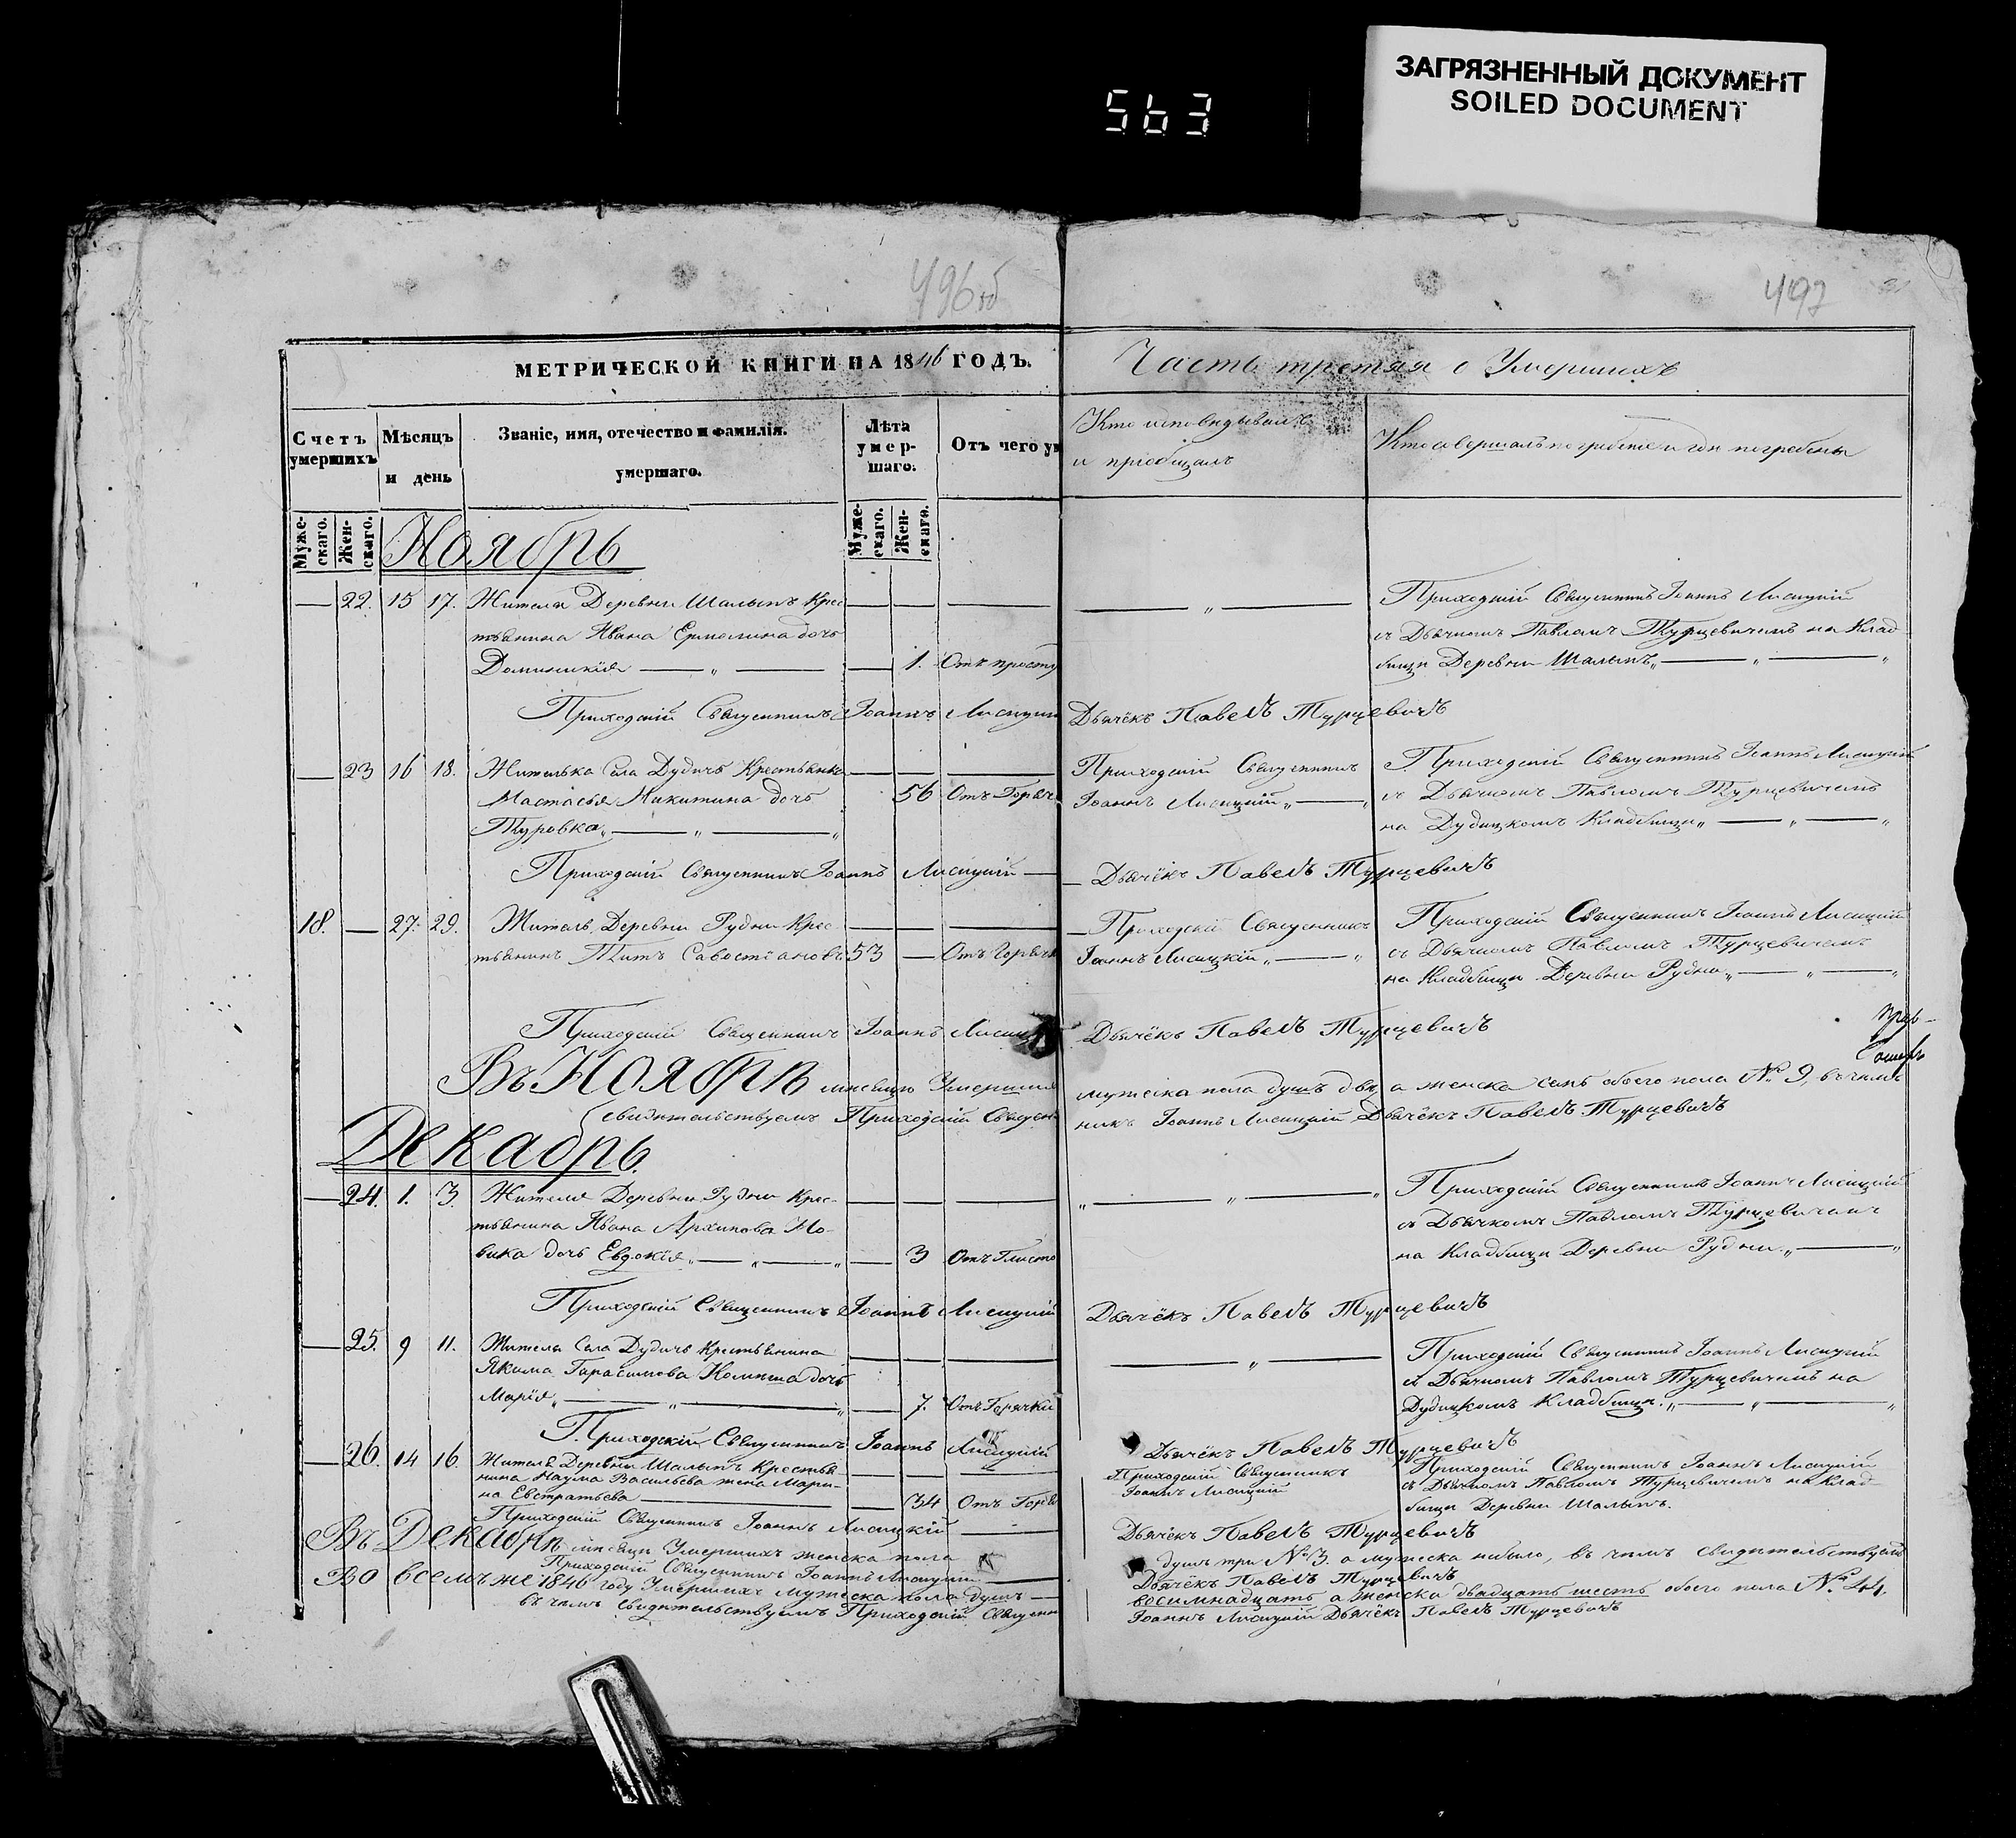 ЗАГРЯЗНЕННЫЙ ДОКУМЕНТ
SOILED DOCUMENT
563
496об
497
МЕТРИЧЕСКОЙ КНИГИ НА 1846 ГОДЪ.
Часть третяя о Умершихъ
Счетъ умершихъ
Мѣсяцъ и день
Званіе, имя, отечество и фамилія. умершаго.
Лѣта умер-шаго.
Отъ чего ум
Кто исповѣдывалъ
и пріобщалъ
Кто совершалъ погребеніе и гдѣ погребены
Муже-скаго.
Жен-скаго.
Муже-скаго.
Жен-скаго.
Ноябрь
22. 15 17. Жителя Деревни Шалыпъ Крес
тьянина Ивана Ермолина дочь
Домникія 1. Отъ просту
Приходскій Священникъ Іоаннъ Лисицкій
съ Дьячкомъ Павломъ Турцевичемъ на Клад
бищи Деревни Шалыпъ
Приходскій Священникъ Іоаннъ Лисицкі Дьячёкъ Павелъ Турцевичъ
23 16 18. Жителька Села Дудичъ Крестьянка
Настасья Никитина дочь 56 Отъ Горяч
Туровка
Приходскій Священникъ
Іоаннъ Лисицкій
Приходскій Священникъ Іоаннъ Лисицкій
съ Дьячкомъ Павломъ Турцевичемъ
на Дудицкомъ Кладбищи
Приходскій Священникъ Іоаннъ Лисицкій Дьячёкъ Павелъ Турцевичъ
18. 27. 29. Житель Деревни Рудни Крес
тьянинъ Титъ Савостіановъ 53 Отъ Горячк
Приходскій Священникъ
Іоаннъ Лисицкій
Приходскій Священникъ Іоаннъ Лисицкій
съ Дьячкомъ Павломъ Турцевичемъ
на Кладбищи Деревни Рудни
Приходскій Священникъ Іоаннъ Лисиц Дьячёкъ Павелъ Турцевичъ
Въ Ноябрѣ мѣсяцѣ Умерших мужеска пола душъ двѣ а женска семь обоего пола №. 9, въ чемъ
свидѣтельствуемъ Приходскій Священ никъ Іоаннъ Лисицкій Дьячёкъ Павелъ Турцевичъ
Декабрь.
24. 1. 3. Жителя Деревни Рудни Крес-
тьянина Ивана Архипова Но-
вика дочь Евдокія 3 Отъ Глисто
Приходскій Священникъ Іоаннъ Лисицкій
съ Дьячкомъ Павломъ Турцевичемъ
на Кладбищи Деревни Рудни
Приходскій Священникъ Іоаннъ Лисицкій Дьячёкъ Павелъ Турцевичъ
25. 9 11. Жителя Села Дудичъ Крестьянина
Якима Гарасимова дочь
Марія 7. Отъ Горячки
Приходскій Священникъ Іоаннъ Лисицкій
съ Дьячкомъ Павломъ Турцевичемъ на
Дудицкомъ Кладбищи.
Приходскій Священникъ Іоаннъ Лисицкій Дьячёкъ Павелъ Турцевичъ
26. 14 16. Жителя Деревни Шалыпъ Крестья-
нина Наума Васильева жена Мари-
на Евстратьева 34 Отъ Горя
Приходскій Священникъ
Іоаннъ Лисицкій
Приходскій Священникъ Іоаннъ Лисицкій
съ Дьячкомъ Павломъ Турцевичемъ на Клад-
бищи Деревни Шалыпъ.
Приходскій Священникъ Іоаннъ Лисицкій Дьячёкъ Павелъ Турцевичъ
Въ Декабрѣ мѣсяцѣ Умершихъ женска пола душъ три №3. а мужеска небыло, въ чемъ свидѣтельствуемъ
Приходскій Священникъ Іоаннъ Лисицкій Дьячёкъ Павелъ Турцевичъ
Во всемъ же 1846 году Умершихъ мужеска пола душъ восимнадцать а женска двадцать шесть обоего пола №. 44.
въ чемъ Свидѣтельствуемъ Приходскій Священн Іоаннъ Лисицкій Дьячёкъ Павелъ Турцевичъ